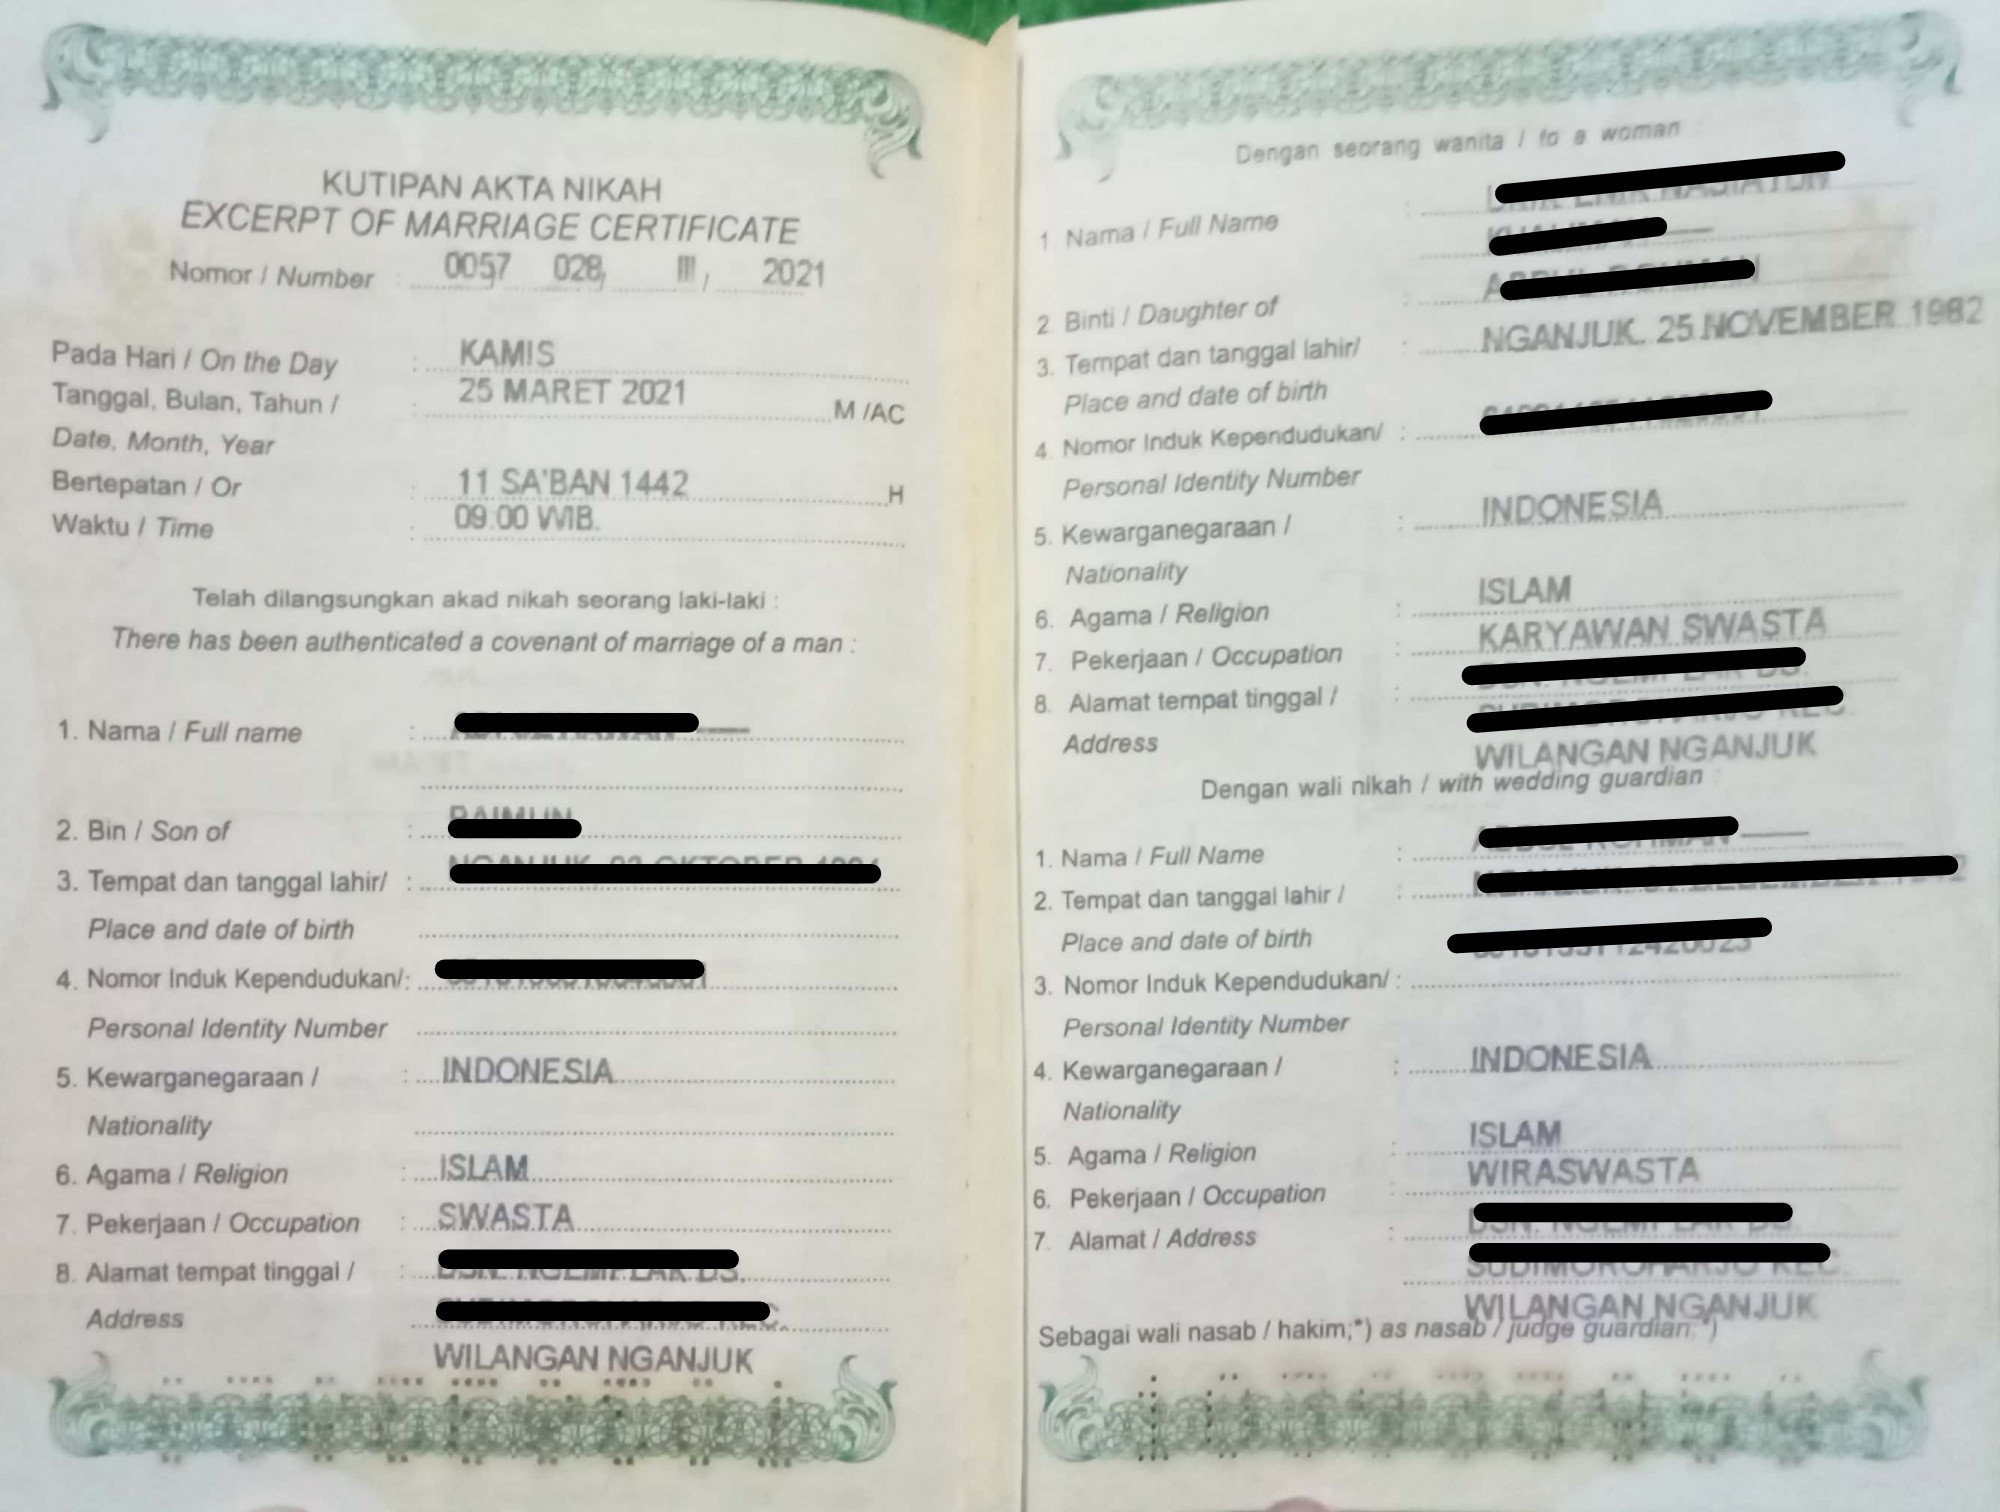 KUTIPAN AKTA NIKAH
EXCERPT OF MARRIAGE CERTIFICATE
Nomor / Number : 0057 028, III, 2021
Pada Hari / On the Day : KAMIS
Tanggal, Bulan, Tahun / : 25 MARET 2021 M /AC
Date, Month, Year
Bertepatan / Or : 11 SA'BAN 1442 H
Waktu / Time : 09.00 WIB.
Telah dilangsungkan akad nikah seorang laki-laki :
There has been authenticated a covenant of marriage of a man :
1. Nama / Full name :
2. Bin / Son of :
3. Tempat dan tanggal lahir/ :
Place and date of birth
4. Nomor Induk Kependudukan/:
Personal Identity Number
5. Kewarganegaraan / : INDONESIA
Nationality
6. Agama / Religion : ISLAM
7. Pekerjaan / Occupation : SWASTA
8. Alamat tempat tinggal / :
Address
WILANGAN NGANJUK
Dengan seorang wanita / to a woman
1 Nama / Full Name :
2 Binti / Daughter of :
3. Tempat dan tanggal lahir/ : NGANJUK. 25 NOVEMBER 1982
Place and date of birth
4. Nomor Induk Kependudukan/ :
Personal Identity Number
5. Kewarganegaraan / : INDONESIA
Nationality
6. Agama / Religion : ISLAM
7. Pekerjaan / Occupation : KARYAWAN SWASTA
8. Alamat tempat tinggal / :
Address
WILANGAN NGANJUK
Dengan wali nikah / with wedding guardian
1. Nama / Full Name :
2. Tempat dan tanggal lahir / :
Place and date of birth
3. Nomor Induk Kependudukan/ :
Personal Identity Number
4. Kewarganegaraan / : INDONESIA
Nationality
5. Agama / Religion : ISLAM
6. Pekerjaan / Occupation : WIRASWASTA
7. Alamat / Address :
WILANGAN NGANJUK
Sebagai wali nasab / hakim;*) as nasab / judge guardian;*)